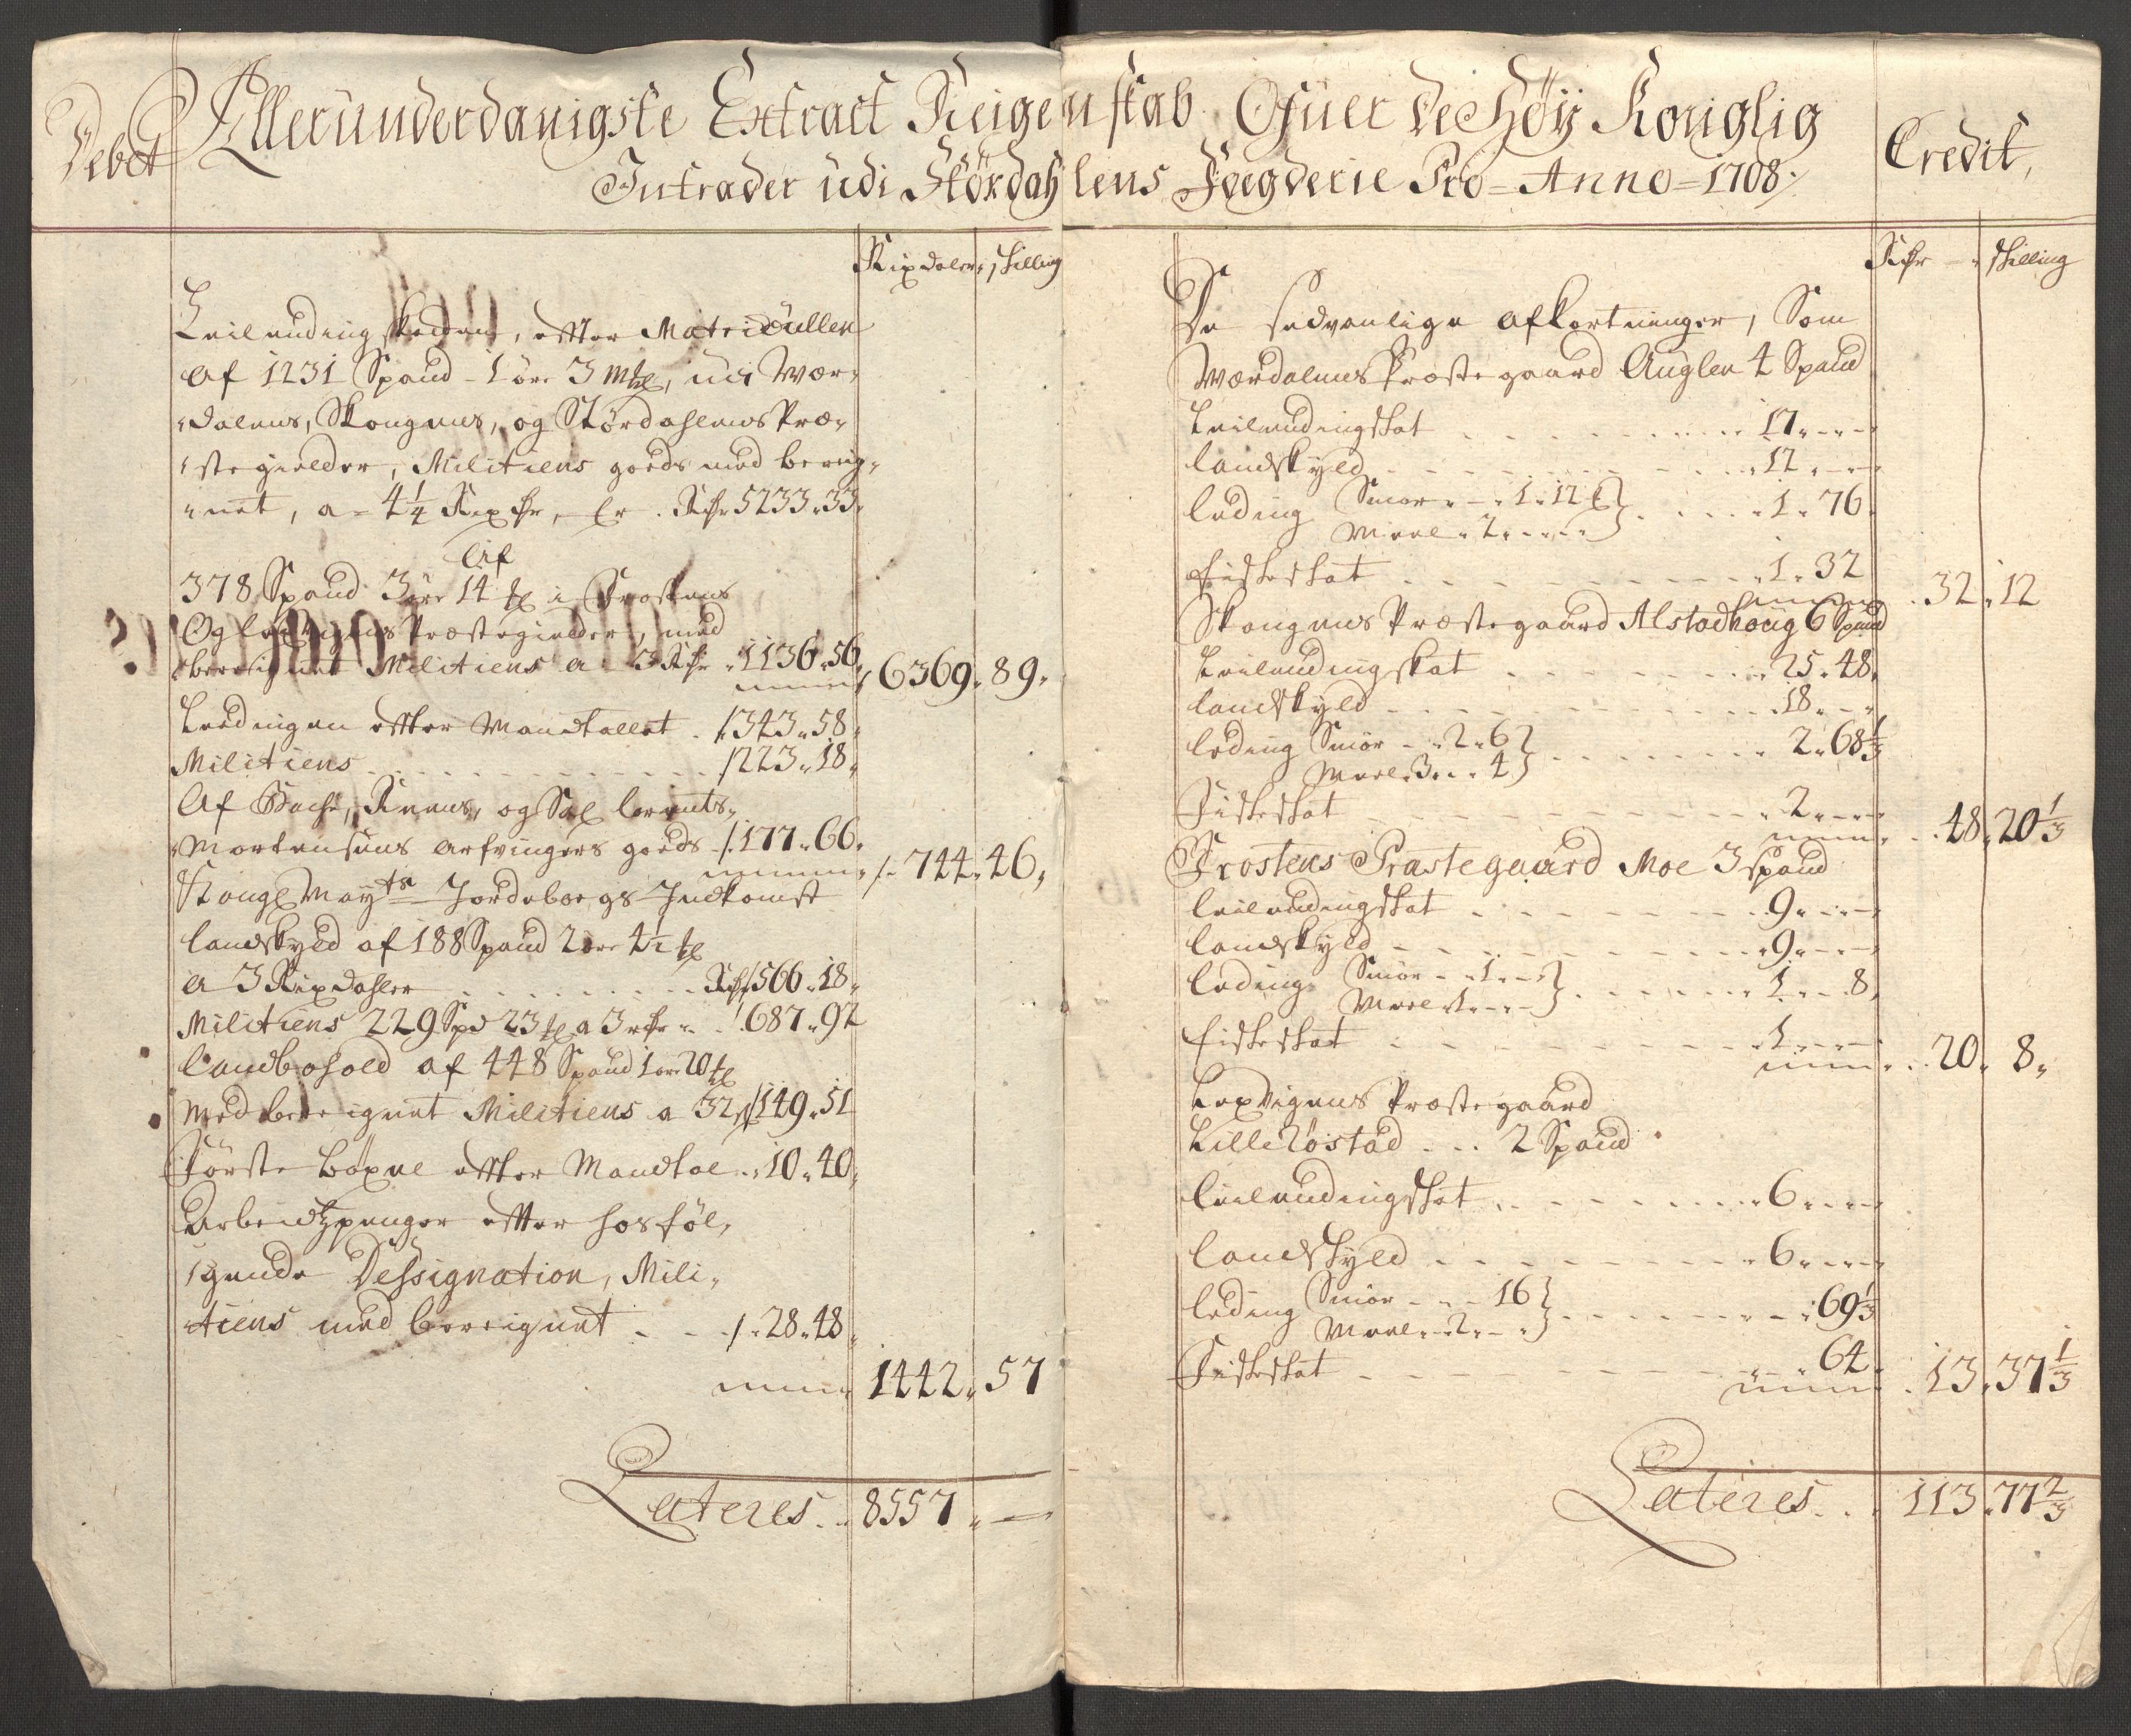 Debet
Allerunderdanigste Extract Reigenskab Ofuer de Höÿ Koniglig
Intrader udi Stördahlens Foegderie Pro = Anno = 1708 ·/·
Credit,
Rixdaler, skilling
Leilendingskatten, effter Matricullen
Af 1231 Spand - 1 öre 3 mkl, udi Wær,
dalens, Skongens, og Stördahlens Præ,
stegielder, Militiens goeds med bereig,
net, a = 4 1/4 Rixdr, Er . Rdr 5233 . 33 .
Af
378 Spand 3 öre 14 kl i Frostens
Og Lexvigens Præstegielder, med
bereignet Militiens a 3 Rdr . 1136 . 56 , 6369 . 89 .
Leedingen effter Mandtallet . /: 343 . 58 ,
Militiens . . . /: 223 . 18 ,
Af Bachs, Reens, og Sal Lorents,
Mortensens arfvingers goeds /: 177 . 66 . /: 744 . 46 ,
Kongl Maÿts Jordebogs Indkomst
Landskyld af 188 Spand 2 öre 4 1/2 kl
a 3 Rixdahler . . . Rdr 566 . 18 ,
Militiens 229 Spd 23 kl a 3 rdr . 687 . 92
Landbohold af 448 Spand 1 öre 20 kl
med bereignet Militiens a 32 s 149 . 51
Förste böxel effter Mandtal . . 10 . 40 ,
Arbeidtzpenger effter hosföl,
gende Dessignation, Mili,
tiens med bereignet . . . /: 28 . 48 ,
1442 . 57
Lateres . . 8557 . —
Rdr — skilling
De sedvanlige afkortninger, Som
Wærdalens Præstegaard Auglen 4 Spand
Leilendingskat . . . 17 . - -
Landskyld . . . 12 . - -
Leding Smör . - . 1 . 12 . . . 1 . 76 .
Meel . 2 . - -
Fiskeskat . . . 1 . 32 . 32 . 12
Skongens Præstegaard Alstadhaug 6 Spand
Leilendingskat . . . 25 . 48 .
Landskyld . . . 18 . - -
Leding Smör - . 2 . 6 . . . 2 . 68 1/3
Meel . 3 . . . 4
Fiskeskat . . . 2 . - - . 48 . 20 1/3
Frostens Præstegaard Moe 3 spand
Leilendingskat . . . 9 . - -
Landskyld . . . 9 . - -
Leding Smör - . 1 . - . . . 1 . - . 8 ,
Meel . 1 . - -
Fiskeskat . . . 1 . - - . 20 . 8 ,
Lexvigens Præstegaard
Lille Röstad . . . 2 Spand
Leilendingskat . . . 6 . - -
Landskyld . . . 6 . - -
Leding Smör - . - 16 . . . - . 69 1/3
Meel . - 2 . -
Fiskeskat . . . 64 . 13 . 37 1/3
Lateres . . . 113 . 77 2/3